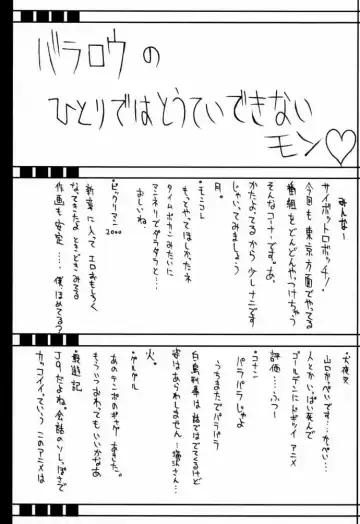 バラロウの
ひとりではとうていできない
モン♡
みんなー
サイボットロボッチ！
今回も東京方面でやってる
番組をどんどんやっつけちゃう
そんなコーナーです。あ、
かたよってるから少しナニです
じゃいってみましょう
月。
・モンコレ
もってやってほしかったネ
タイムボカンみたいに
マンネリでダラダラと…
おしいね。
・ビックリマン2000
新章に入ってエロおもしろく
なってきたよ ときどきみてる
作画も安定……僕はほめてるつ
・犬夜叉
山口かっぺいです…かっぺい…
人とかいっぱい死んで
ゴールデンにドギツイアニメ
評価……ふつー
・コナン
パラパラじゃよ
うちまたでパラパラ
白鳥刑事は話ではでてくるけど
姿はあらわしません…塩沢さん…
火。
・ゲルゲル
あのテンポのギャグ あきました。
もういつおわってもいいかなぁ
・最遊記
J9だよね 会話のノリ。っぽさで
カッコイイっていう このアニメは